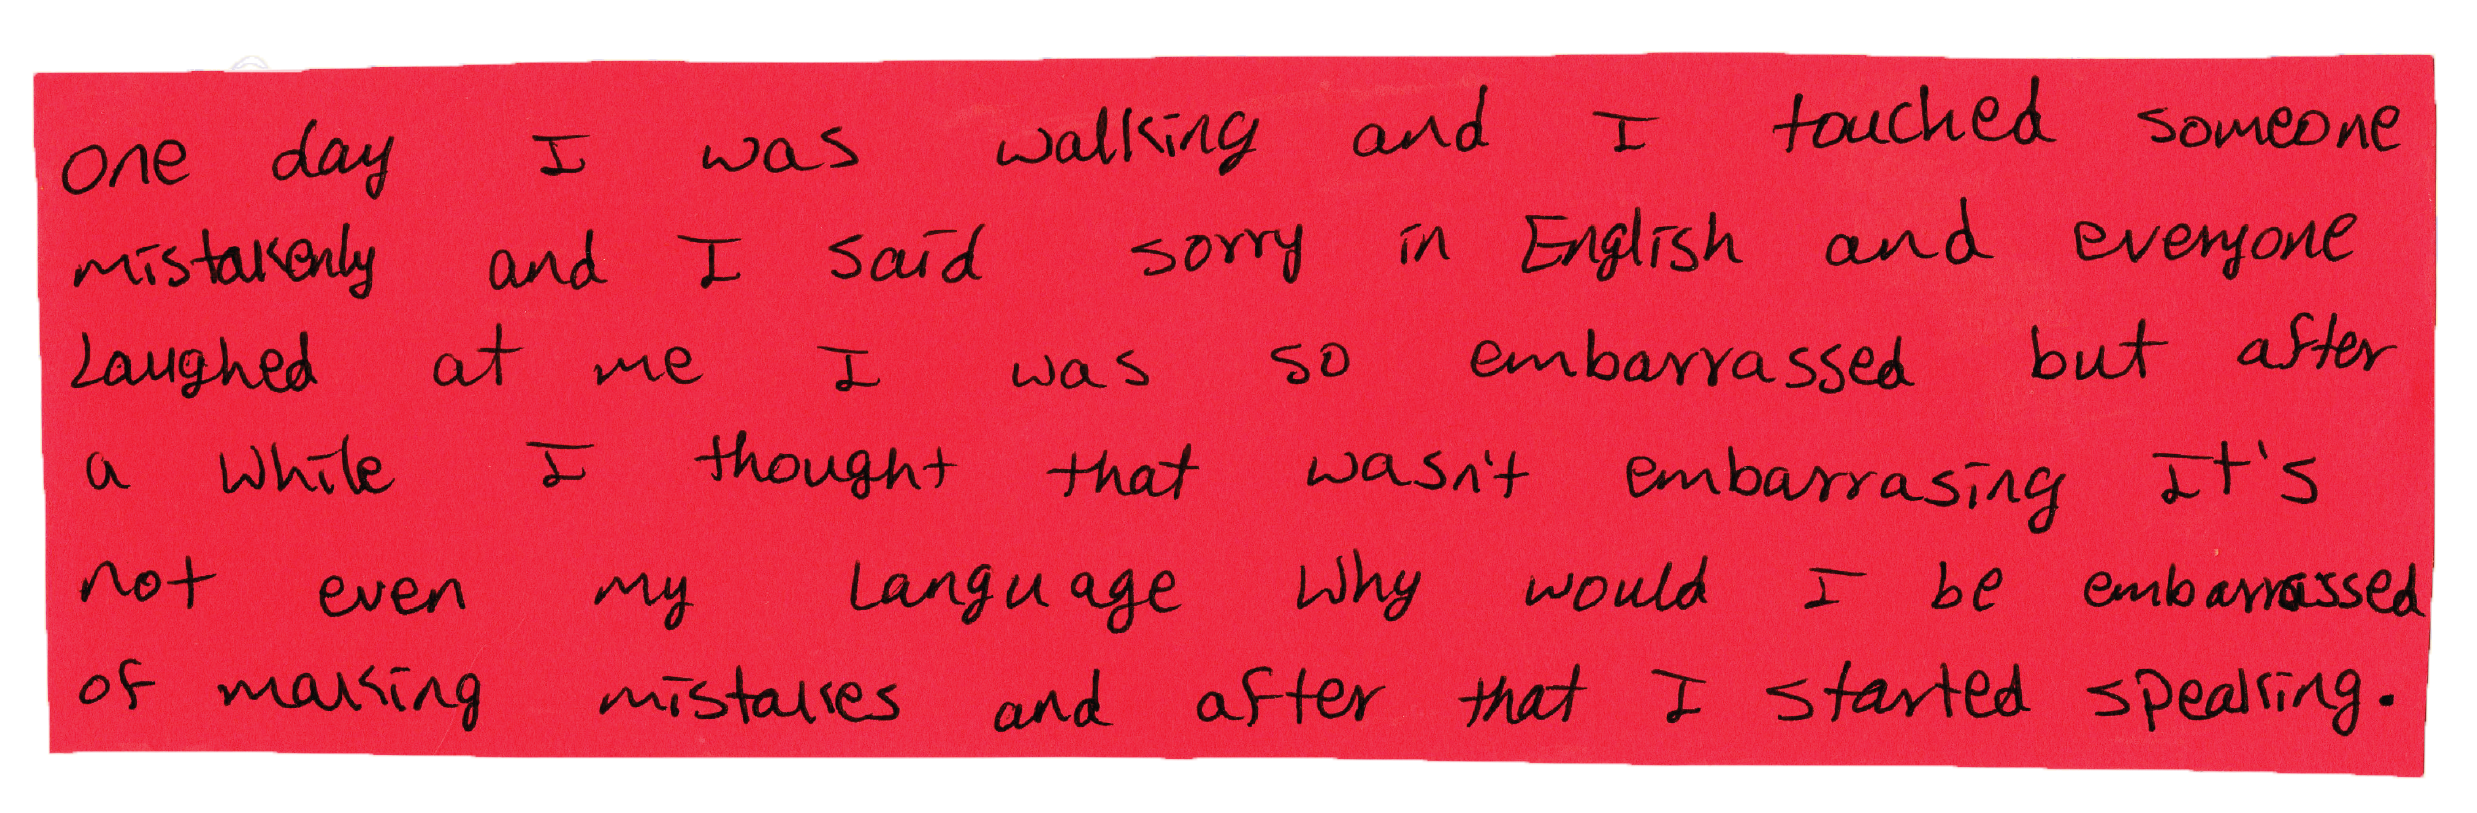 one day I was walking and I touched someone
mistakenly and I said sorry in English and everyone
Laughed at me I was so embarrassed but after
a while I thought that wasn't embarrasing It's
not even my Language Why would I be embarrassed
of making mistakes and after that I started speaking.